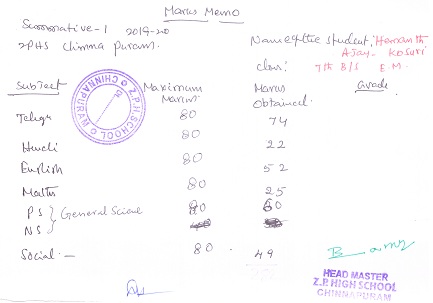 Marks Memo
Summative-1 2019-20
ZPHS Chinna Puram.
Name of the student: Hemanth
Ajay- Kosuri
class: 7th B/S E.M.
Subject Maximum Marks Marks Obtained. Grade
Telugu 80 74
Hindi 80 22
English 80 52
Maths 80 25
PS } General Science 80 60
NS
Social. - 80 . 49
Z.P.H.SCHOOL CHINNAPURAM
HEAD MASTER
Z.P. HIGH SCHOOL
CHINNAPURAM